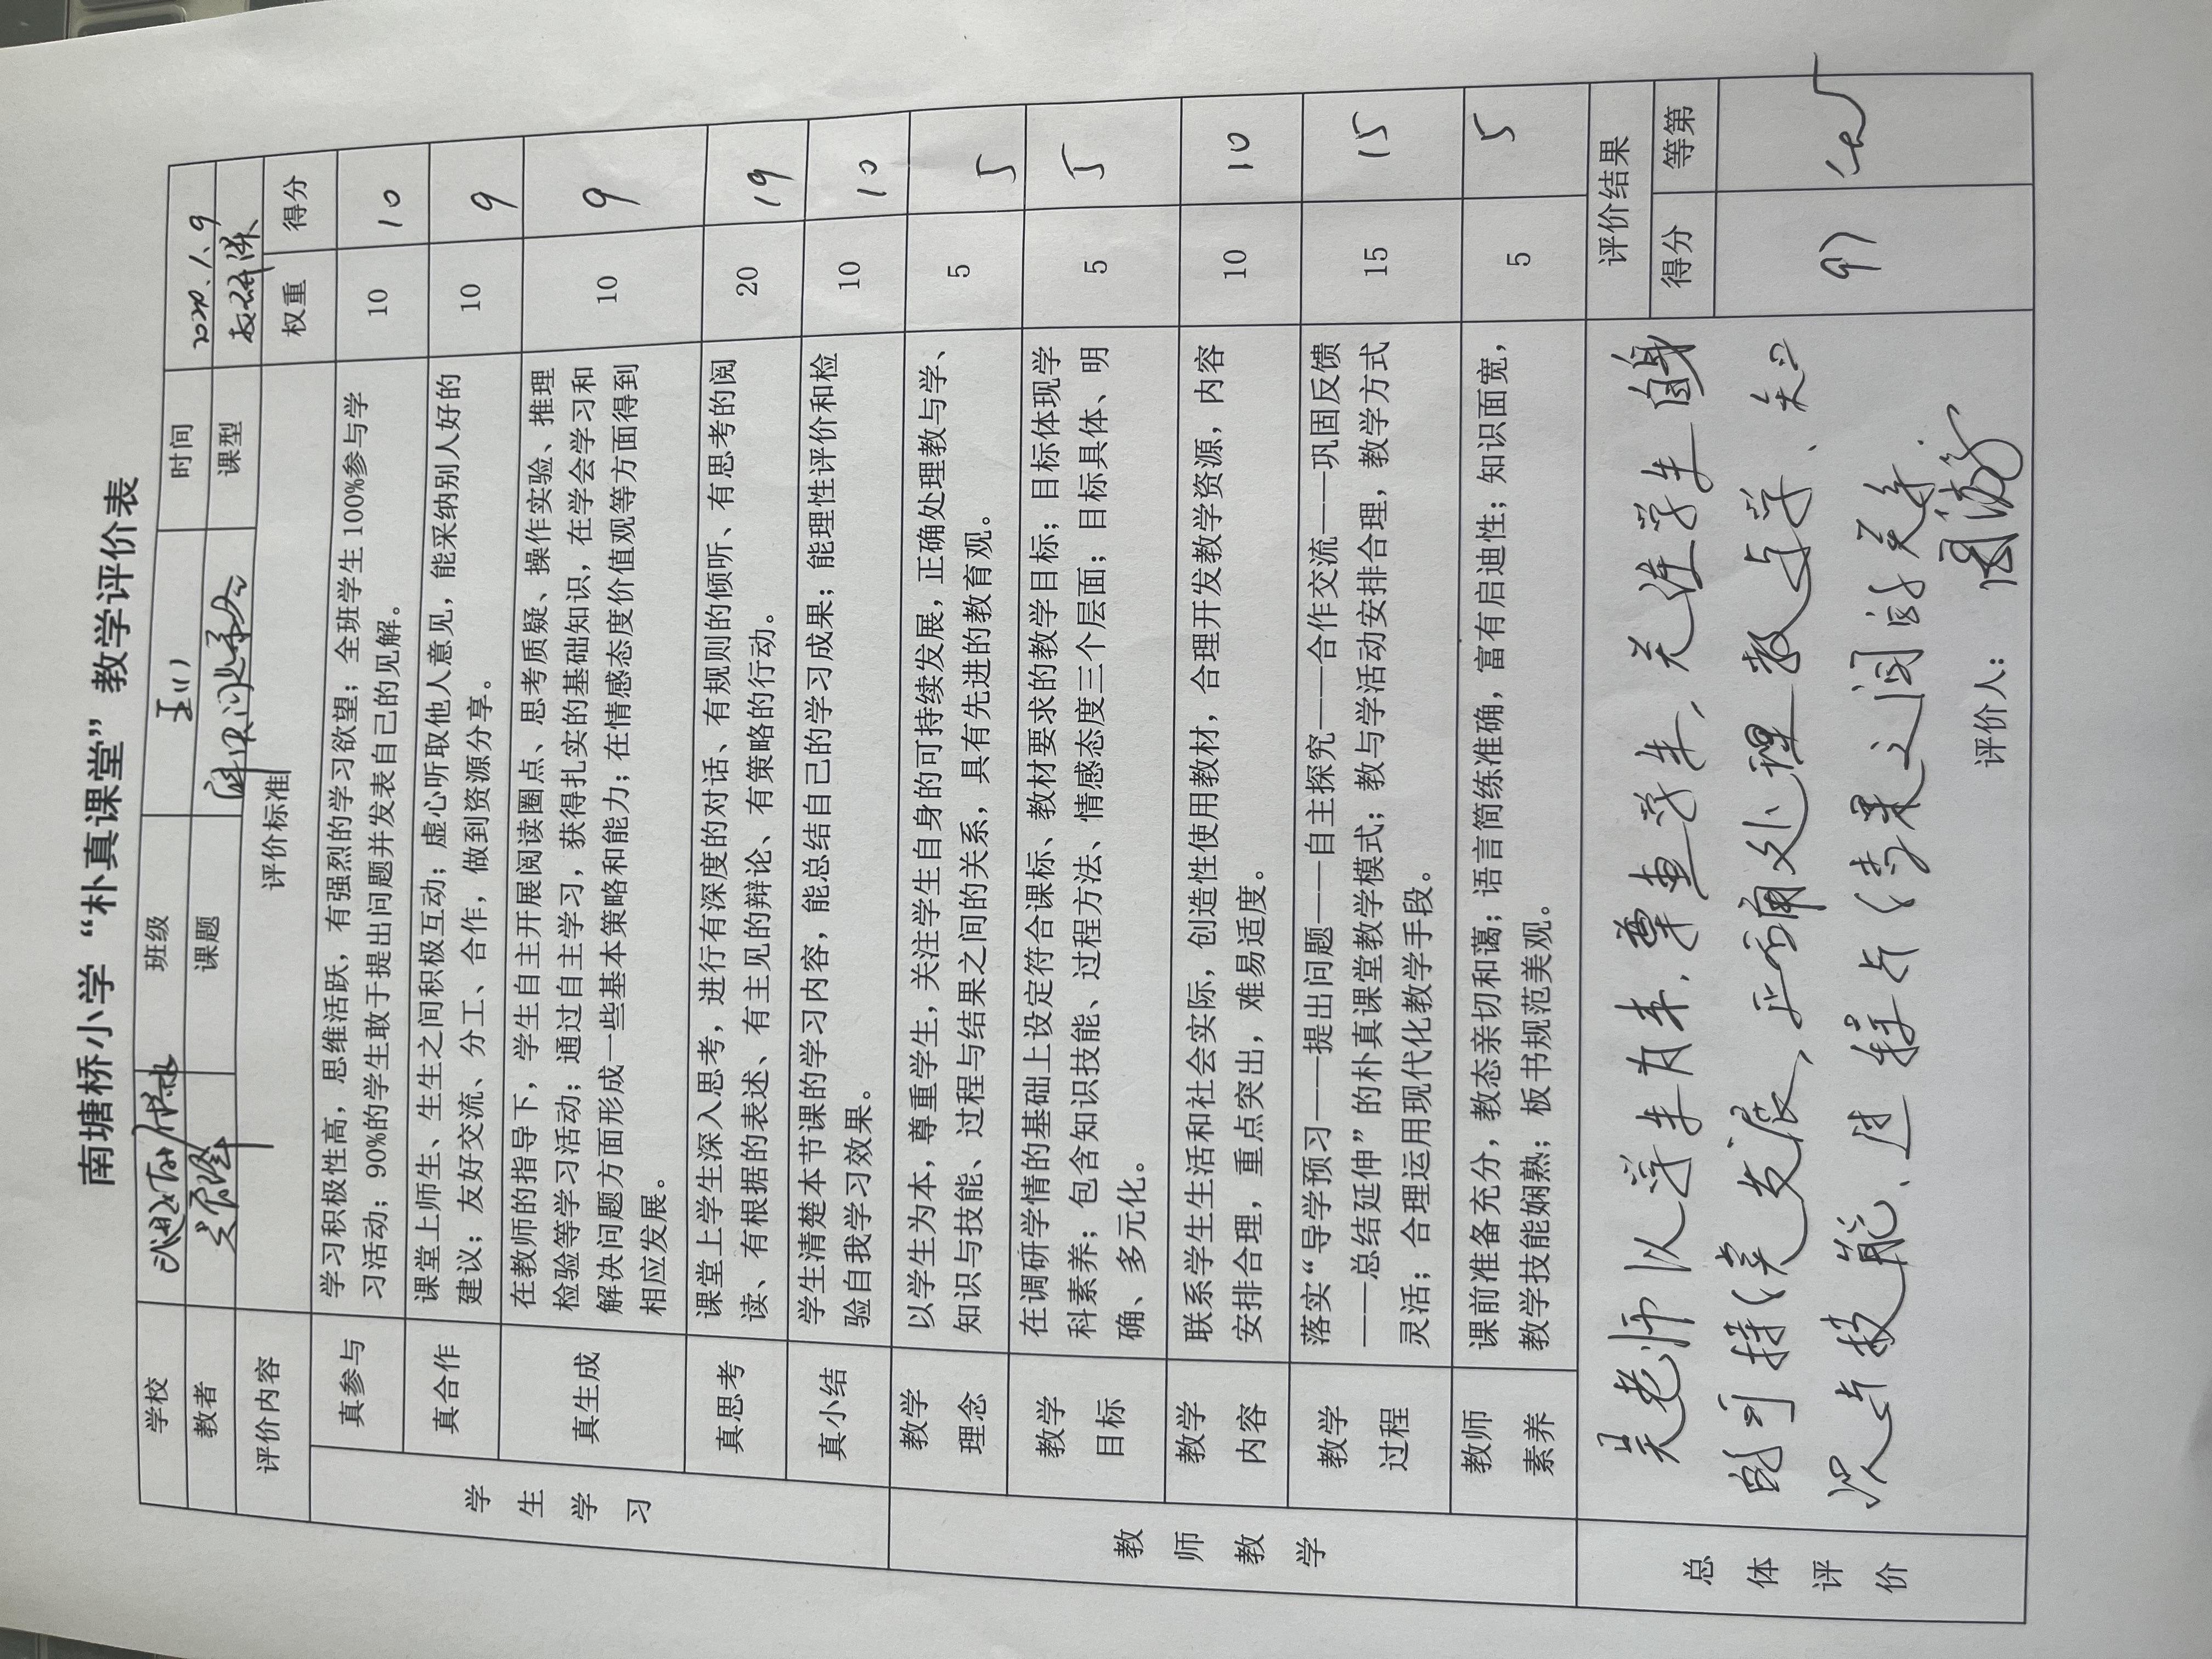 南塘桥小学“朴真课堂”教学评价表
学校 班级 五(1) 时间 2020.1.9
教者 吴峰 课题 解决问题 课型
评价内容 评价标准 权重 得分
学生学习
真参与 学习积极性高，思维活跃，有强烈的学习欲望；全班学生100%参与学 10 10
习活动；90%的学生敢于提出问题并发表自己的见解。
真合作 课堂上师生、生生之间积极互动；虚心听取他人意见，能采纳别人好的 10 9
建议；友好交流、分工、合作，做到资源分享。
真生成 在教师的指导下，学生自主开展阅读圈点、思考质疑、操作实验、推理 10 9
检验等学习活动；通过自主学习，获得扎实的基础知识，在学会学习和
解决问题方面形成一些基本策略和能力；在情感态度价值观等方面得到
相应发展。
真思考 课堂上学生深入思考，进行有深度的对话、有规则的倾听、有思考的阅 20 19
读、有根据的表述、有主见的辩论、有策略的行动。
真小结 学生清楚本节课的学习内容，能总结自己的学习成果；能理性评价和检 10 10
验自我学习效果。
教师教学
教学理念 以学生为本，尊重学生，关注学生自身的可持续发展，正确处理教与学、 5 5
知识与技能、过程与结果之间的关系，具有先进的教育观。
教学目标 在调研学情的基础上设定符合课标、教材要求的教学目标；目标体现学 5 5
科素养；包含知识技能、过程方法、情感态度三个层面；目标具体、明
确、多元化。
教学内容 联系学生生活和社会实际，创造性使用教材，合理开发教学资源，内容 10 10
安排合理，重点突出，难易适度。
教学过程 落实“导学预习——提出问题——自主探究——合作交流——巩固反馈 15 15
——总结延伸”的朴真课堂教学模式；教与学活动安排合理，教学方式
灵活；合理运用现代化教学手段。
教师素养 课前准备充分，教态亲切和蔼；语言简练准确，富有启迪性；知识面宽， 5 5
教学技能娴熟；板书规范美观。
总体评价 评价结果
得分 等第
97 优
吴老师以学生为本，尊重学生，关注学生自身
的可持续发展，正确处理教与学、知
识与技能、过程与结果之间的关系.
评价人：